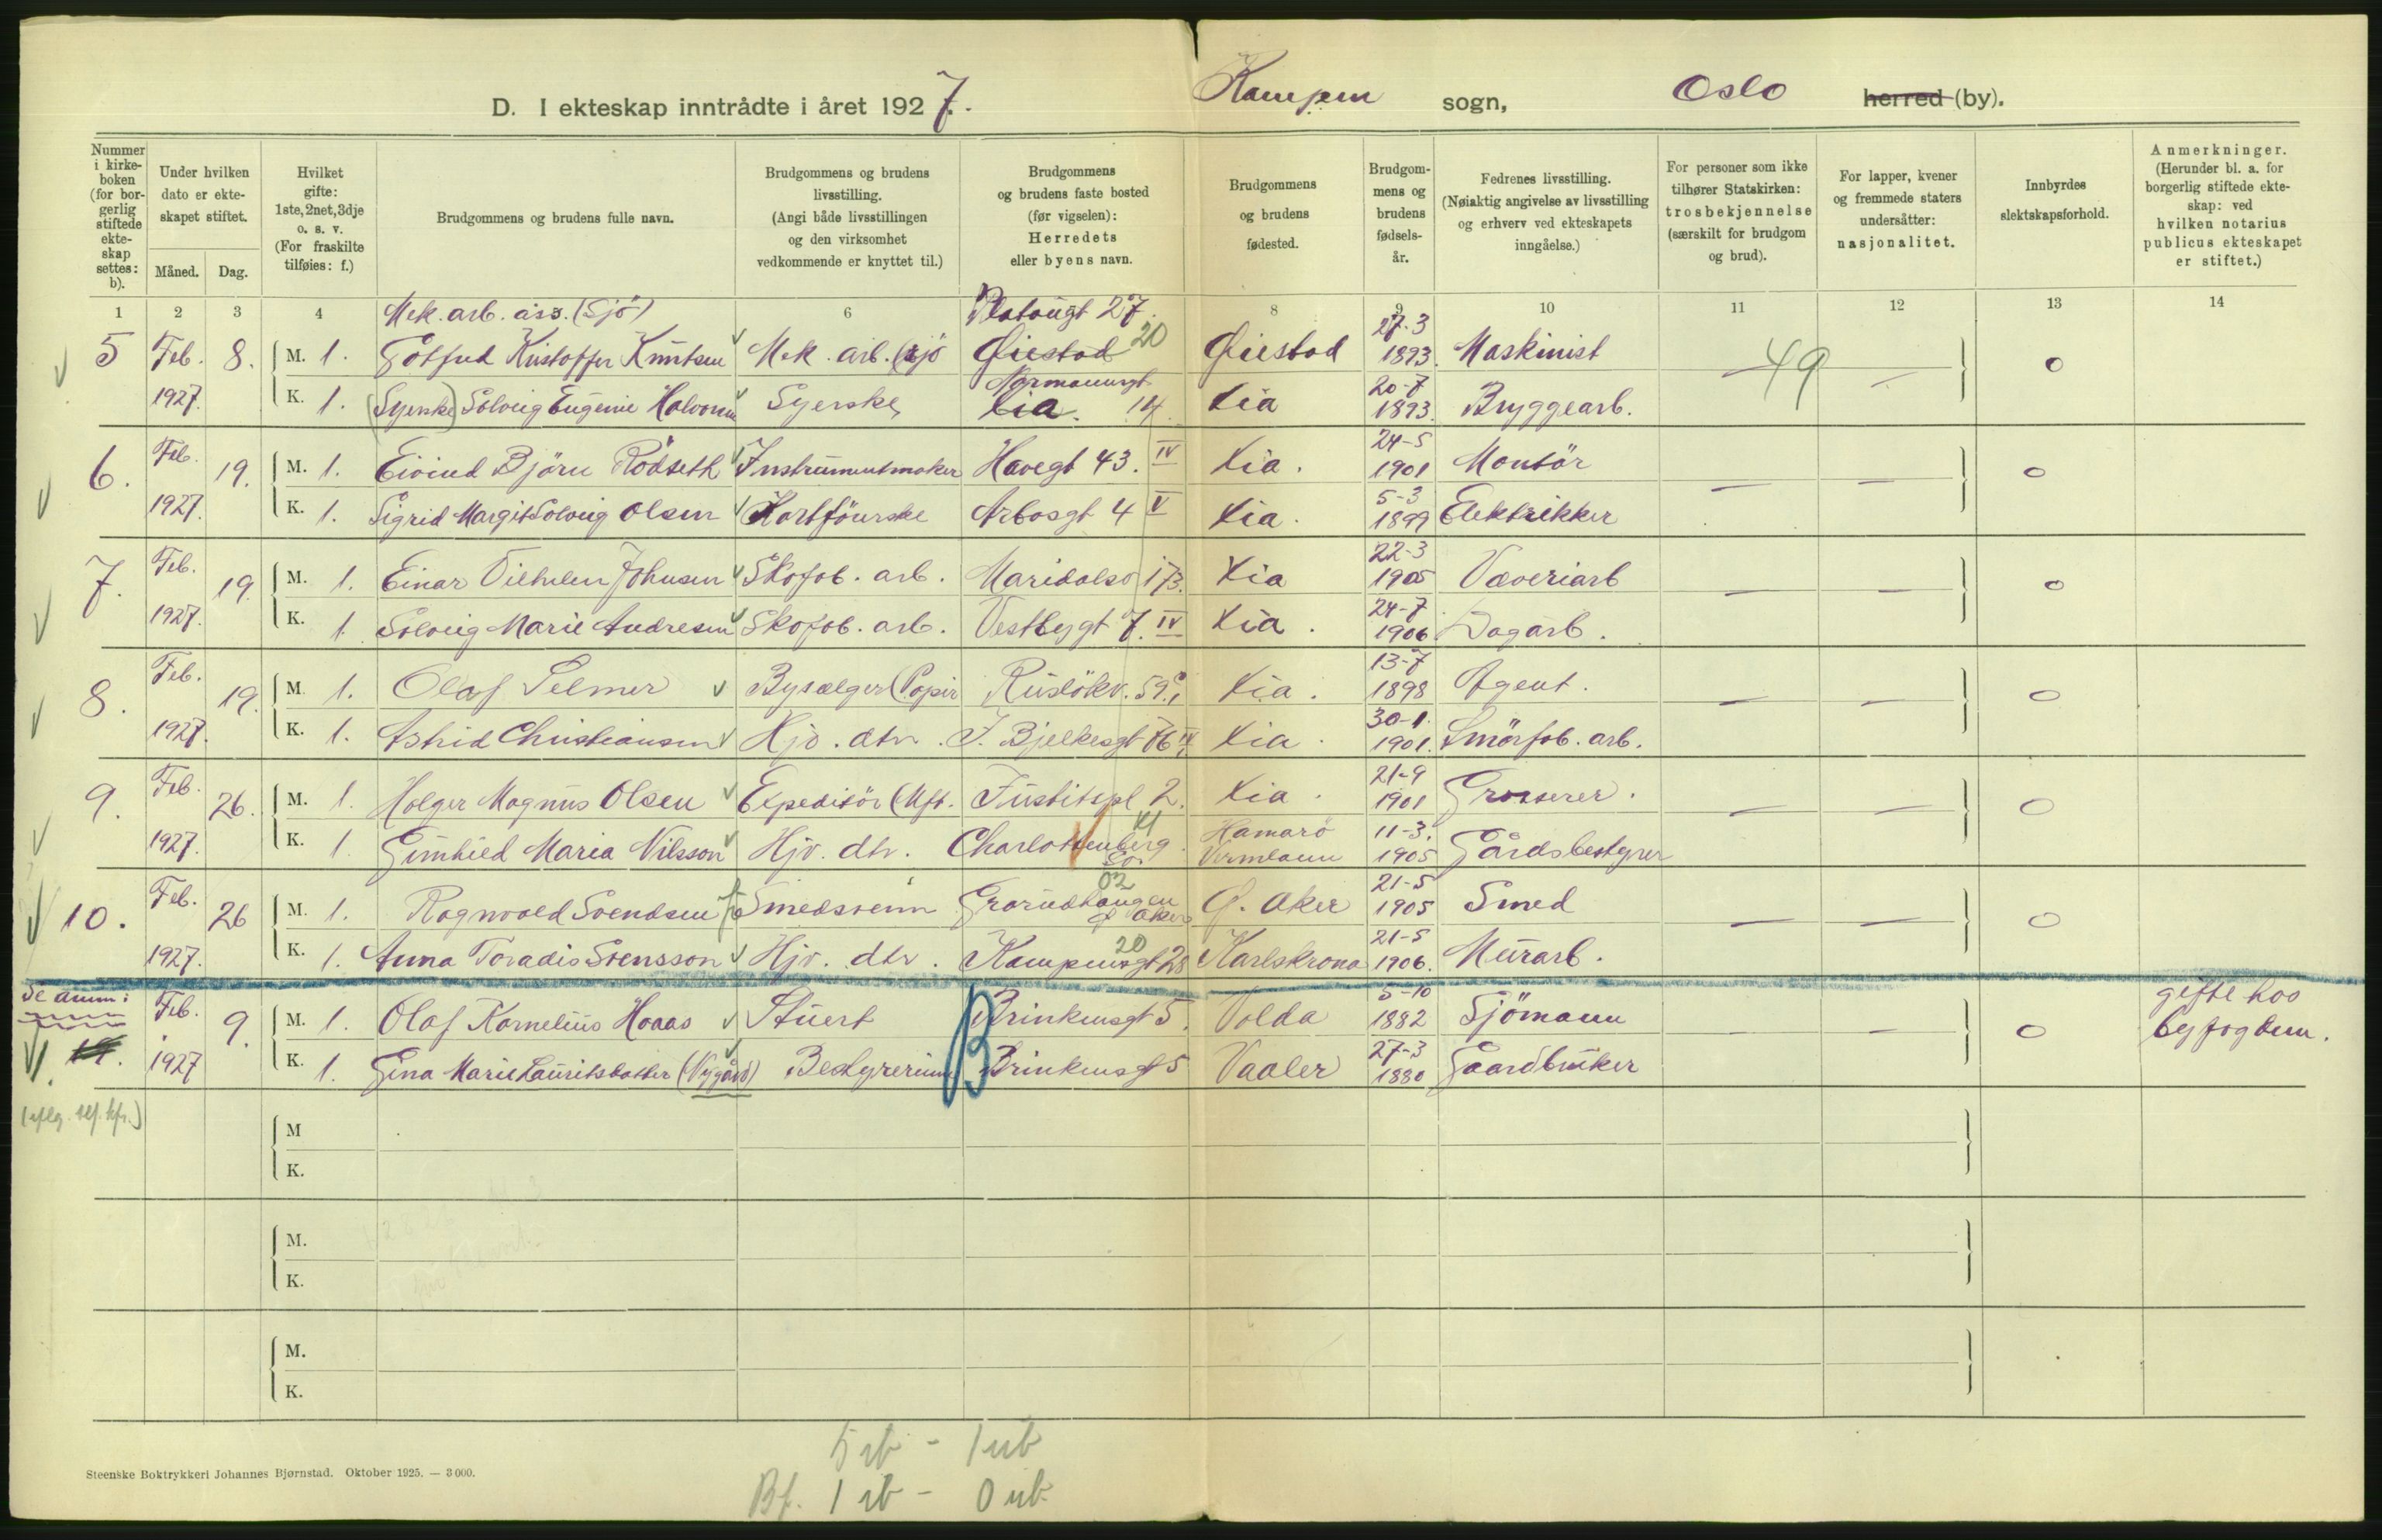 D. I ekteskap inntrådte i året 1927. Kampen sogn, Oslo herred (by).
Nummer i kirkeboken (for borgerlig stiftede ekteskap settes: b).
Under hvilken dato er ekteskapet stiftet.
Måned. Dag.
Hvilket gifte: 1ste, 2net, 3dje o. s. v. (For fraskilte tilføies: f.)
Brudgommens og brudens fulle navn.
Brudgommens og brudens livsstilling. (Angi både livsstillingen og den virksomhet vedkommende er knyttet til.)
Brudgommens og brudens faste bosted (før vigselen): Herredets eller byens navn.
Brudgommens og brudens fødested.
Brudgommens og brudens fødselsår.
Fedrenes livsstilling. (Nøiaktig angivelse av livsstilling og erhverv ved ekteskapets inngåelse.)
For personer som ikke tilhører Statskirken: trosbekjennelse (særskilt for brudgom og brud).
For lapper, kvener og fremmede staters undersåtter: nasjonalitet.
Innbyrdes slektskapsforhold.
Anmerkninger. (Herunder bl. a. for borgerlig stiftede ekteskap: ved hvilken notarius publicus ekteskapet er stiftet.)
1 2 3 4 6 8 9 10 11 12 13 14
Mek. arb. ass. (Sjö) Platougt 27.
5 Feb. 8. M. 1. Gotfred Kristoffer Knutsen Mek. arb. (sjö Øiestad 20 Øiestad 27-3 1893. Maskinist — 49 — 0
1927. K. 1. (Syerske) Solveig Eugenie Halvorsen Syerske Normannsgt 14 Kia. Kia 20-7 1893. Bryggearb.
6. Feb. 19. M. 1. Eivind Björn Rödseth Instrumentmaker Havegt 43. IV Kia. 24-5 1901 Montör — — 0
1927. K. 1. Sigrid Margit Solveig Olsen Arbosgt 4 V Kia. 5-3 1899 Elektrikker
7. Feb. 19 M. 1. Einar Vilhelm Johnsen Skofab. arb. Maridalsv 173. Kia 22-3 1905 Væveriarb — — 0
1927. K. 1 Solveig Marie Andresen Skofab. arb. Vestbygt 7. IV Kia. 24-7 1906 Dagarb.
8. Feb. 19. M. 1. Olaf Selmer Bysælger (Papir Rusløkv. 59. Kia. 13-7 1898 Agent. — — 0
1927. K. 1. Astrid Christiansen Hjv. dtr. J. Bjelkesgt 76 IV Kia. 30-1. 1901. Smörfab. arb.
9. Feb. 26. M. 1. Holger Magnus Olsen Expeditör (Mft. Justitspl 2. Kia. 21-9 1901 Grosserer. — — 0
1927. K. 1. Gunhild Maria Nilsson Hjv. dtr. Charlottenberg. Hamarö Vermlann 11-3. 1905 Gårdsbestyrer
10. Feb. 26 M. 1. Ragnvald Svendsen Smedsvenn Grorudhaugen Ø Aker 02 Ø. Aker 21-5 1905 Smed — — 0
1927. K. 1. Anna Toradis Svensson Hjv. dtr. Kampensgt 28 20 Karlskrona 21-5 1906. Murarb.
Feb. 9. M. 1. Olaf Kornelius Haaas Stuert Brinkensgt 5. Volda 5-10 1882 Sjömann — — 0 gifte hos byfogden.
1927 K. 1. Gina Marie Lauritsdatter (Nygård) Bestyrerinne B Brinkensgt 5 Vaaler 27-3 1880 Gaardbruker
M K.
M. K.
M. K.
5 rb - 1 ub
Bf. 1 rb - 0 ub.
Steenske Boktrykkeri Johannes Bjørnstad. Oktober 1925. — 3 000.